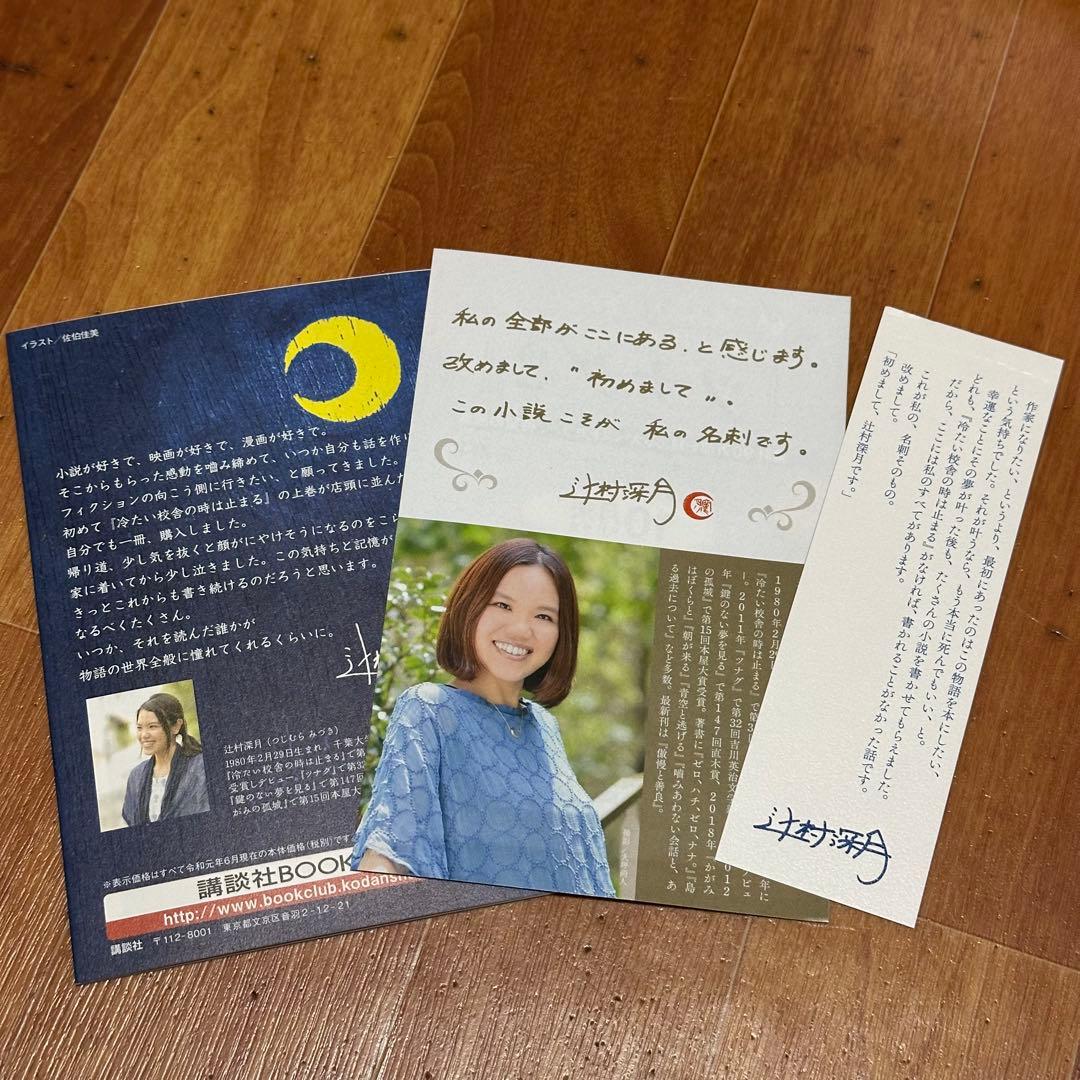 イラスト／佐伯佳美
小説が好きで、映画が好きで、漫画が好きで。
そこからもらった感動を噛み締めて、いつか自分も話を作り
フィクションの向こう側に行きたい、と願ってきました。
初めて『冷たい校舎の時は止まる』の上巻が店頭に並んだ
自分でも一冊、購入しました。
帰り道、少し気を抜くと顔がにやけそうになるのをこら
家に着いてから少し泣きました。この気持ちと記憶が
きっとこれからも書き続けるのだろうと思います。
なるべくたくさん。
いつか、それを読んだ誰かが
物語の世界全般に憧れてくれるくらいに。
辻村深月（つじむら みづき）
1980年2月29日生まれ。千葉大
『冷たい校舎の時は止まる』で第
受賞しデビュー。『ツナグ』で第32
『鍵のない夢を見る』で第147回
がみの孤城』で第15回本屋大
※表示価格はすべて令和元年6月現在の本体価格（税別）です
講談社BOOK
http://www.bookclub.kodansh
講談社 〒112-8001 東京都文京区音羽2-12-21
私の全部がここにある、と感じます。
改めまして、“初めまして”。
この小説こそが 私の名刺です。
辻村深月
1980年2月2
年に
『冷たい校舎の時は止まる』で第3
デビュ
ー。2011年『ツナグ』で第32回吉川英治文
2012
年『鍵のない夢を見る』で第147回直木賞、2018年『かがみ
の孤城』で第15回本屋大賞受賞。著書に『ゼロ、ハチ、ゼロ、ナナ。』『島
はぼくらと』『朝が来る』『青空と逃げる』『噛みあわない会話と、あ
る過去について』など多数。最新刊は『傲慢と善良』。
作家になりたい、というより、最初にあったのはこの物語を本にしたい、
という気持ちでした。それが叶うなら、もう本当に死んでもいい、と。
幸運なことにその夢が叶った後も、たくさんの小説を書かせてもらえました。
どれも、『冷たい校舎の時は止まる』がなければ、書かれることがなかった話です。
だから、ここには私のすべてがあります。
これが私の、名刺そのもの。
改めまして。
「初めまして、辻村深月です。」
辻村深月